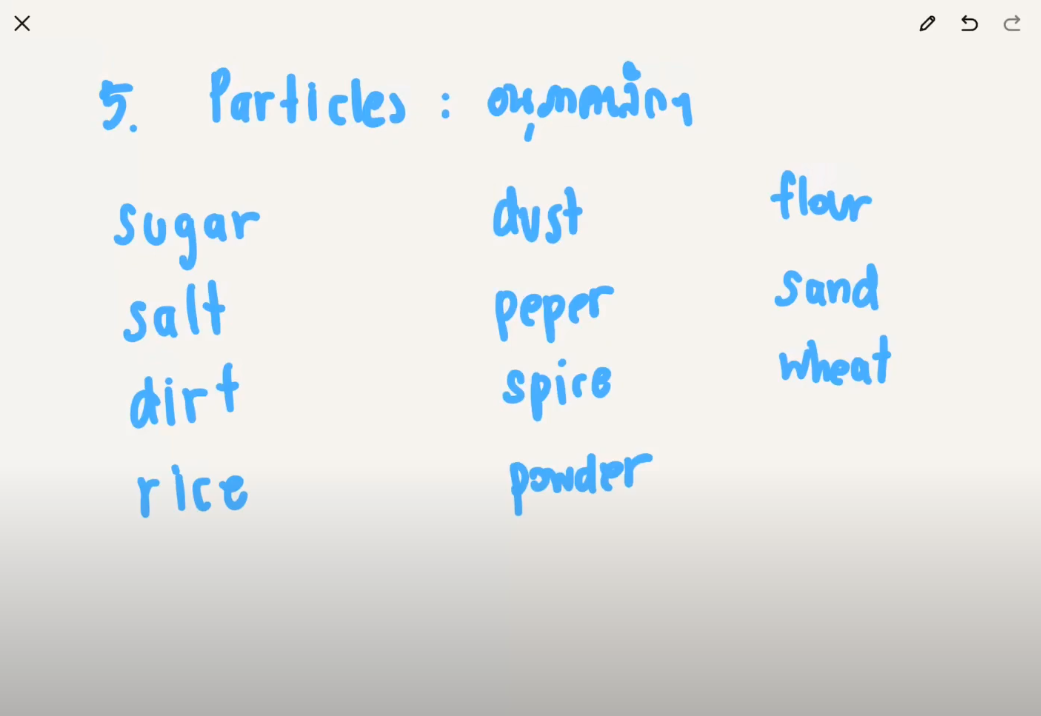 5. Particles : อนุภาคเล็ก
sugar
salt
dirt
rice
dust
peper
spice
powder
flour
sand
wheat